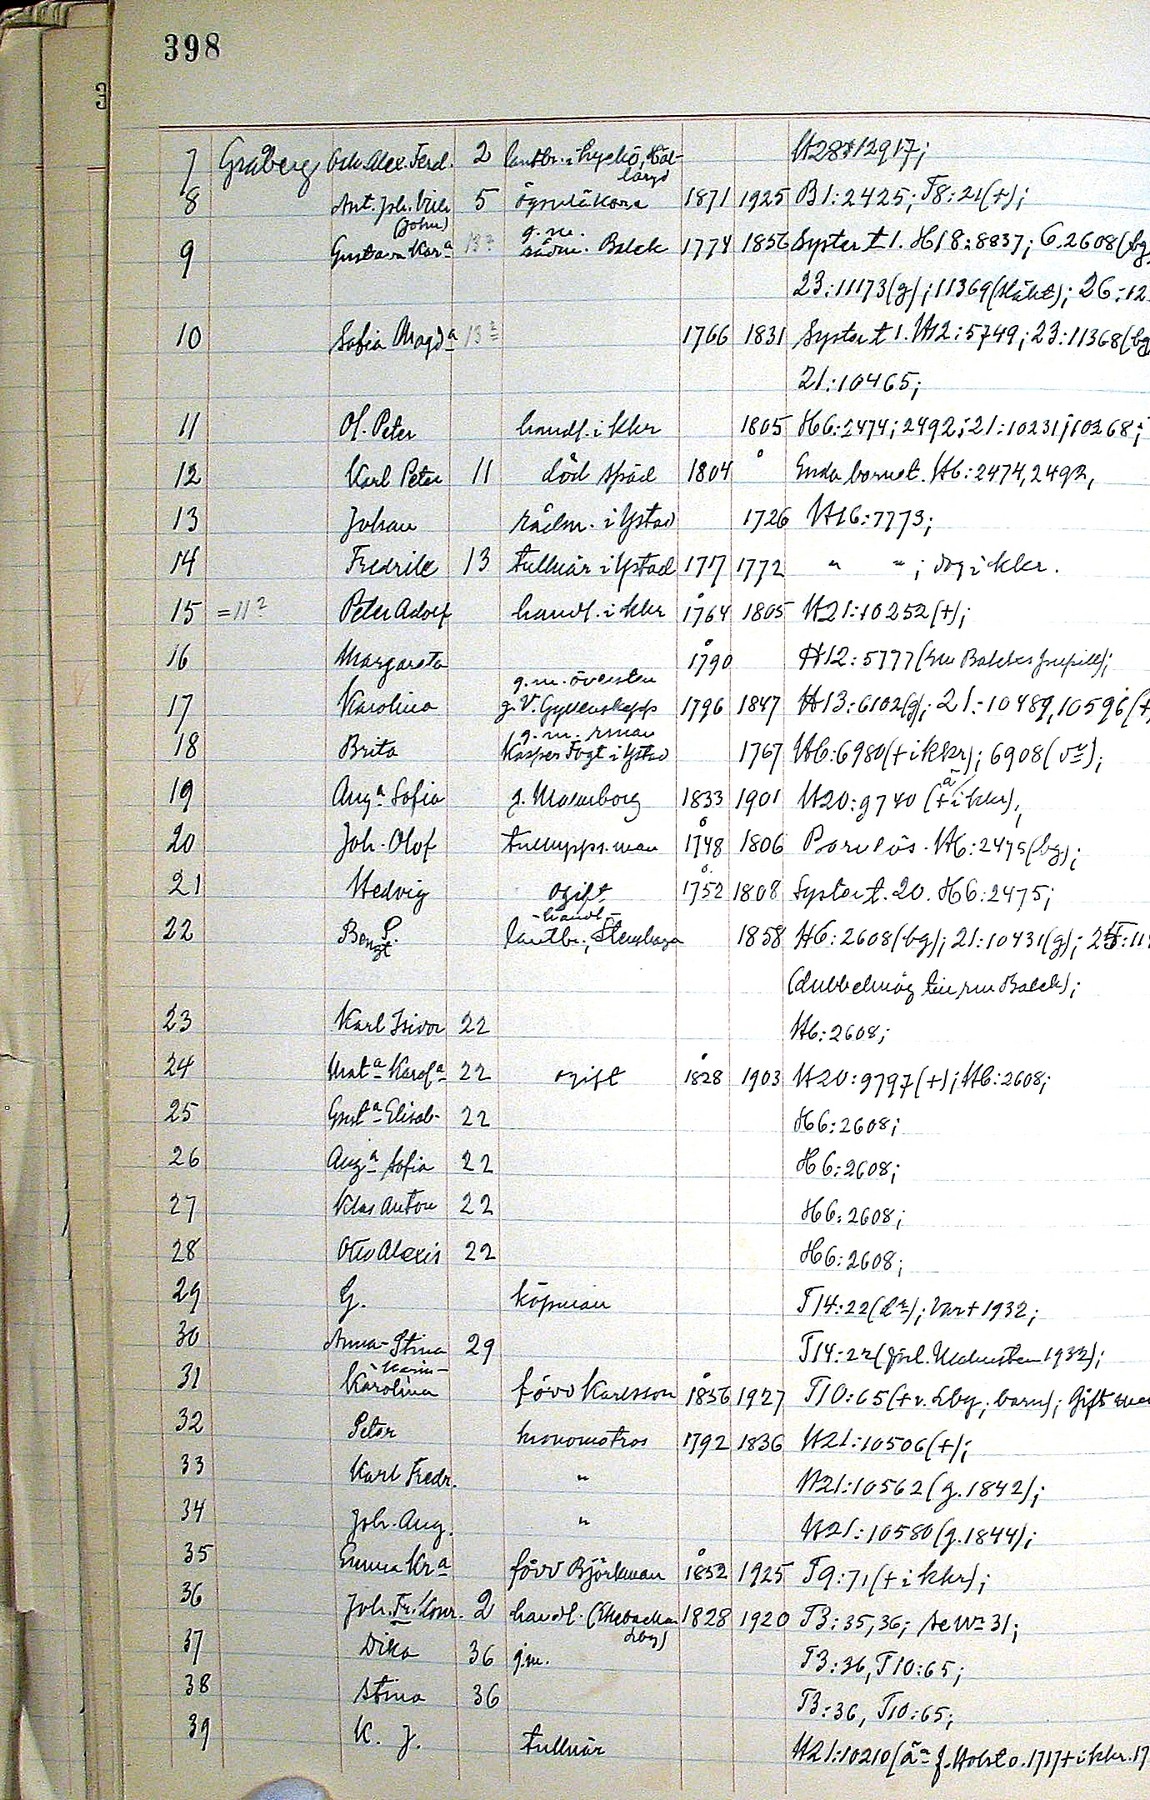 398
3
7 Gråberg Osk. Alex. Ferd. 2 lantbr. i
H28:12917;
8 Ant. Joh. (John) 5 ögonläkare 1871 1925 B1:2425; T8:21(+);
9 Gustava Kar.a 13? g.m. rådm. Balck 1774 1856 Syster t 1. H18:8837; 6.2608(bg
23:11173(g); 11369(släkt); 26:12
10 Sofia Magd.a 13? 1766 1831 Syster t 1. H12:5749; 23:11368(bg
21:10465;
11 Ol. Peter handl. i kkr 1805 H6:2474; 2492; 21:10231; 10268;
12 Karl Peter 11 död späd 1804 Enda barnet. H6:2474, 2492,
13 Johan rådm. i Ystad 1726 H16:7773;
14 Fredrik 13 tullnär i Ystad 1717 1772 " "; dog i kkr.
15 =11? Peter Adolf handl. i kkr 1764 1805 H21:10252(+);
16 Margareta 1790 H12:5777(
17 Karolina g.m. översten g. V. Gyllenskepp 1796 1847 H13:6102(g); 21:10489, 10596(+
18 Brita g.m. rman Kasper Fogt i Ystad 1767 H6:6980(+ i kkr); 6908(
19 Aug.a Sofia g. Malmborg 1833 1901 H20:9740 (+ i kkr);
20 Joh. Olof tullupps.man 1748 1806 Barnlös. H6:2475(bg);
21 Hedvig ogift 1752 1808 Syster t. 20. H6:2475;
22 Bengt P. -handl- lantbr., 1858 H6:2608(bg); 21:10431(g); 25:11
(dubbelmåg till rm Balck);
23 Karl Isidor 22 H6:2608;
24 Karol.a 22 ogift 1828 1903 H20:9797(+); H6:2608;
25 Gust.a Elisab. 22 H6:2608;
26 Aug.a Sofia 22 H6:2608;
27 Klas Anton 22 H6:2608;
28 Otto Alexis 22 H6:2608;
29 G. köpman T14:22( ); 1932;
30 Anna-Stina 29 T14:22( 1932);
31 -Karin- Karolina förv Karlsson 1836 1927 T10:65(+ v. Lby, barn); Gift
32 Peter kronomatros 1792 1836 H21:10506(+);
33 Karl Fredr. " H21:10562(g.1842);
34 Joh. Aug. " H21:10580(g.1844);
35 Emma Kr.a förv Björkman 1852 1925 T9:71(+ i kkr);
36 Joh. Fr. 2 handl. (Ekebacken Lby) 1828 1920 T3:35, 36; Se No 31;
37 Dika 36 g.m. T3:36, T10:65;
38 Stina 36 T3:36, T10:65;
39 K. J. tullnär H21:10210( f. Holst o. 1717 + i kkr. 17